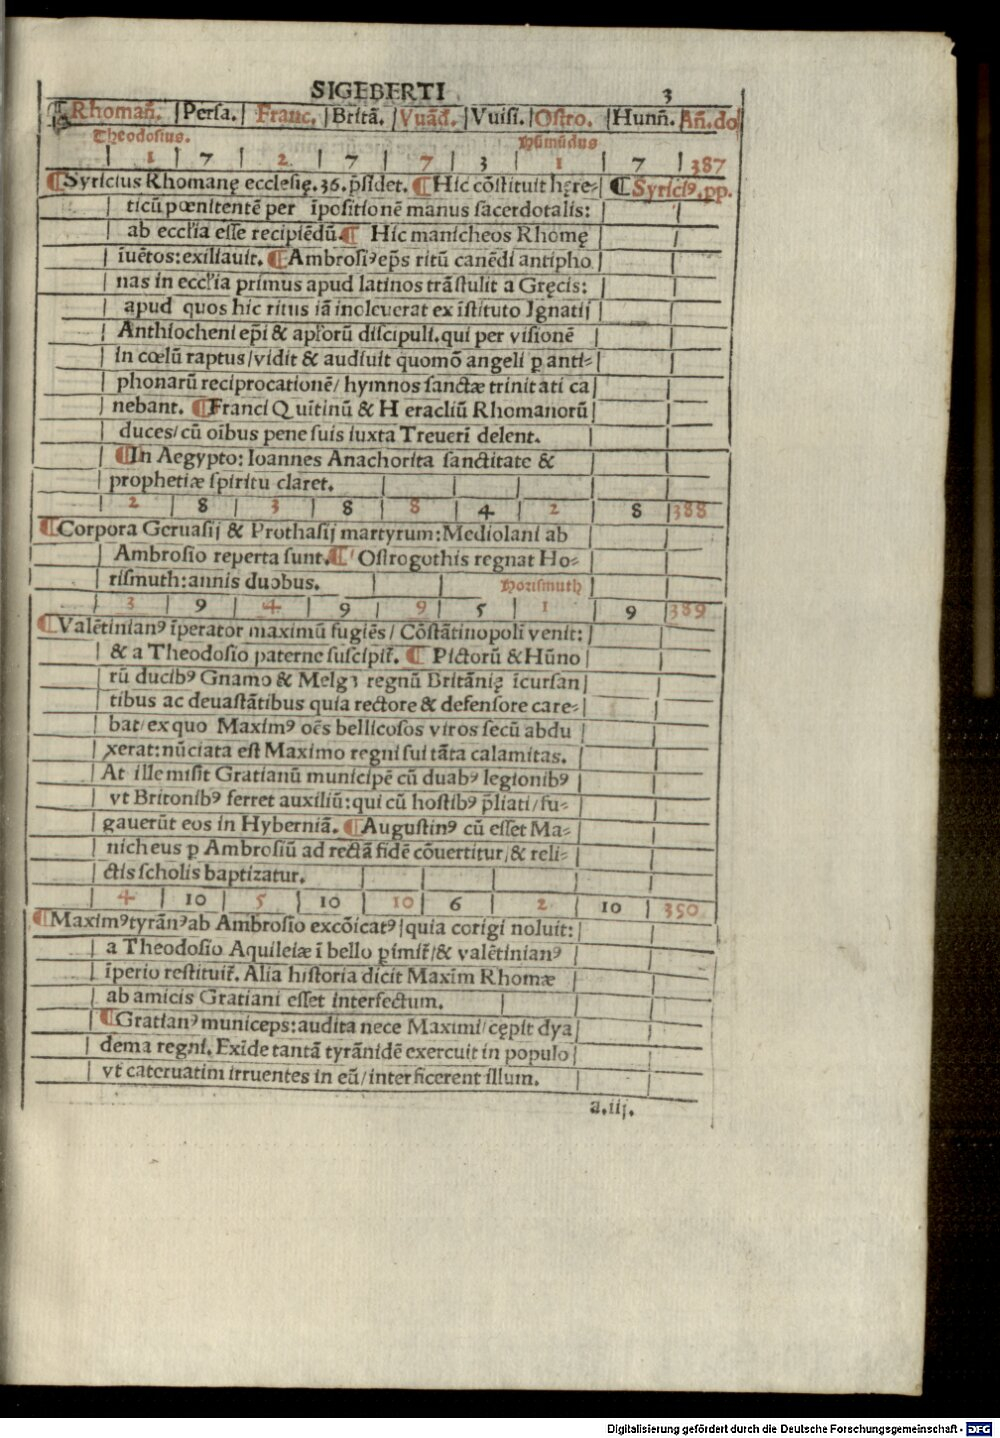 SIGEBERTI 3
¶Rhomañ. Persa. Franc. Britã. Vuãd. Vuisi. Ostro. Hunñ. Añ.do
Theodosius. Hũmũdus
1 7 2 7 7 3 1 7 387
¶Syricius Rhomanę ecclesię.36.p̃sidet. ¶Hic cõstituit hęre= ¶Syriciꝰ.pp.
ticũ pœnitentẽ per ĩpositionẽ manus sacerdotalis:
ab eccl̃ia esse recipiẽdũ.¶ Hic manicheos Rhomę
ĩuẽtos:exiliauit. ¶Ambrosiꝰ ep̃s ritũ canẽdi antipho
nas in eccl̃ia primus apud latinos trãstulit a Gręcis:
apud quos hic ritus iã inoleuerat ex ĩstituto Ignatij
Anthiocheni ep̃i & ap̃l'orũ discipuli.qui per visionẽ
in cœlũ raptus/vidit & audiuit quomõ angeli ꝑ anti=
phonarũ reciprocationẽ/ hymnos sanctæ trinitati ca
nebant. ¶Franci Quĩtinũ & Heracliũ Rhomanorũ
duces/cũ oĩbus pene suis iuxta Treuerĩ delent.
¶In Aegypto: Ioannes Anachorita sanctitate &
prophetiæ spiritu claret.
2 8 3 8 8 4 2 8 388
¶Corpora Geruasij & Prothasij martyrum:Mediolani ab
Ambrosio reperta sunt.¶ Ostrogothis regnat Ho=
rismuth:annis duobus. Horismuth
3 9 4 9 9 5 1 9 389
¶Valẽtinianꝰ ĩperator maximũ fugiẽs/ Cõstãtinopolĩ venit:
& a Theodosio paterne suscipit̃. ¶ Pictorũ & Hũno
rũ ducibꝰ Gnamo & Melgꝫ regnũ Britãnię ĩcursan
tibus ac deuastãtibus quia rectore & defensore care=
bat/ex quo Maximꝰ oẽs bellicosos viros secũ abdu
xerat:nũciata est Maximo regni sui tãta calamitas.
At ille misit Gratianũ municipẽ cũ duabꝰ legionibꝰ
vt Britonibꝰ ferret auxiliũ:qui cũ hostibꝰ p̃liati/fu=
gauerũt eos in Hyberniã. ¶Augustinꝰ cũ esset Ma=
nicheus ꝑ Ambrosiũ ad rectã fidẽ cõuertitur/& reli=
ctis scholis baptizatur.
4 10 5 10 10 6 2 10 350
¶Maximꝰ tyrãnꝰ ab Ambrosio excõicatꝰ/quia corigi noluit:
a Theodosio Aquileiæ ĩ bello ꝑimit̃/& valẽtinianꝰ
ĩperio restituit̃. Alia historia dicit Maxim̃ Rhomæ
ab amicis Gratiani esset intersectum.
¶Gratianꝰ municeps:audita nece Maximi/cępit dya
dema regni. Exĩde tantã tyrãnidẽ exercuit in populo
vt cateruatim irruentes in eũ/interficerent illum.
a.iij.
Digitalisierung gefördert durch die Deutsche Forschungsgemeinschaft - DFG